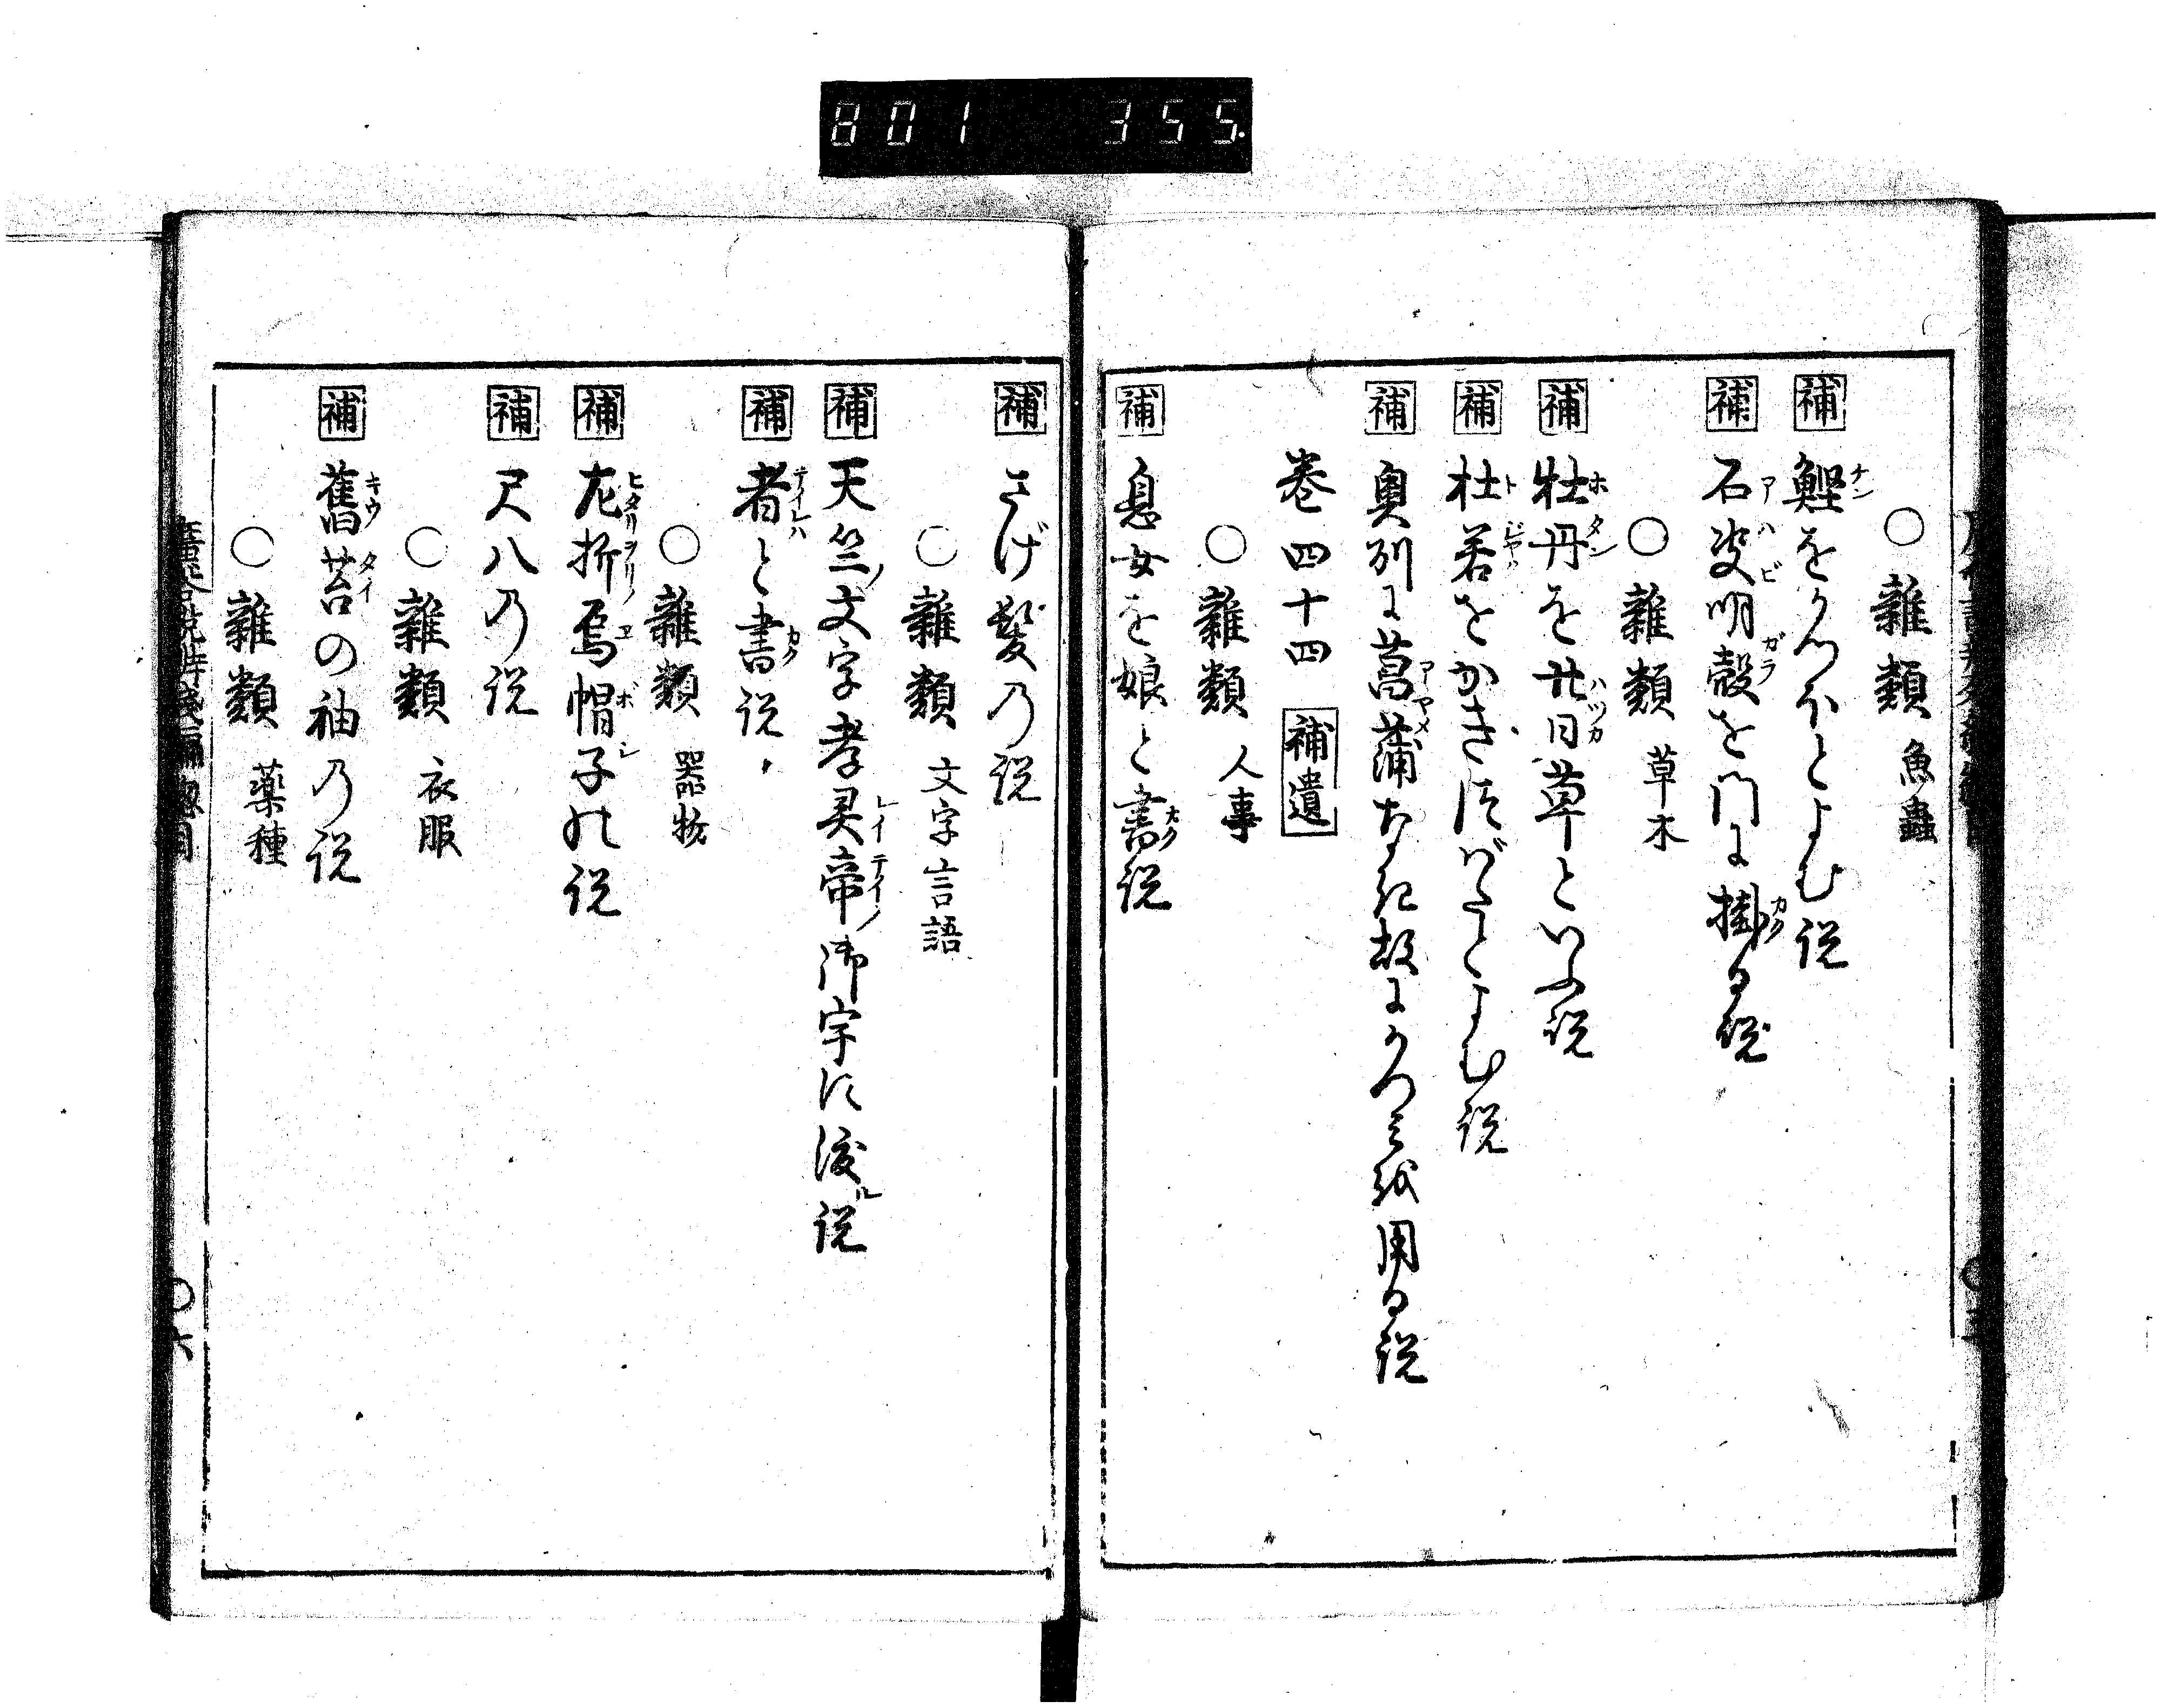 801 355
○雑類 魚蟲
補 鰹をかつほとよむ説
補 石决明殻を門に掛る説
○雑類 草木
補 牡丹を廿日草といふ説
補 杜若をかきつばたとよむ説
補 奥州に菖蒲なき故にかつみを用る説
巻四十四 補遺
○雑類 人事
補 息女を娘と書説
補 さげ髪の説
○雑類 文字言語
補 天竺ノ文字孝灵帝ノ御宇に渡ル説
補 者と書説
○雑類 器物
補 左折烏帽子の説
補 尺八の説
○雑類 衣服
補 舊苔の袖の説
○雑類 薬種
○六